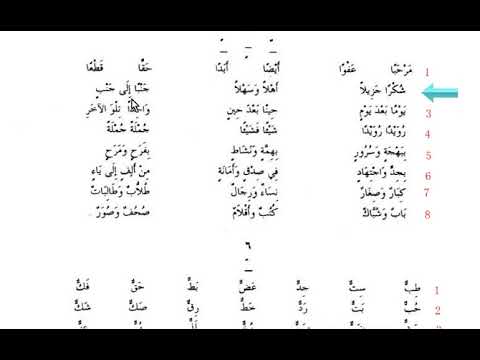 1 مَرْحَبًا عَفْوًا أَيْضًا أَبَدًا حَقًّا قَطْعًا
شُكْرًا جَزِيلاً أَهْلاً وَسَهْلاً جَنْبًا إِلَى جَنْبٍ
3 يَوْمًا بَعْدَ يَوْمٍ حِينًا بَعْدَ حِينٍ تِلْوَ الآخَرِ
4 رُوَيْدًا رُوَيْدًا شَيْئًا فَشَيْئًا جُمْلَةً جُمْلَةً
5 بِبَهْجَةٍ وَسُرُورٍ بِهِمَّةٍ وَنَشَاطٍ بِفَرَحٍ وَمَرَحٍ
6 بِجِدٍّ وَاجْتِهَادٍ فِي صِدْقٍ وَأَمَانَةٍ مِنْ أَلِفٍ إِلَى يَاءٍ
7 كِبَارٌ وَصِغَارٌ نِسَاءٌ وَرِجَالٌ طُلاَّبٌ وَطَالِبَاتٌ
8 بَابٌ وَشُبَّاكٌ كُتُبٌ وَأَقْلاَمٌ صُحُفٌ وَصُوَرٌ
٦
1 طِبٌّ سِتٌّ جِدٌّ غَضٌّ بَطٌّ حَقٌّ فَكٌّ
2 حُبٌّ بَتٌّ رَدٌّ رِقٌّ صَكٌّ شَكٌّ